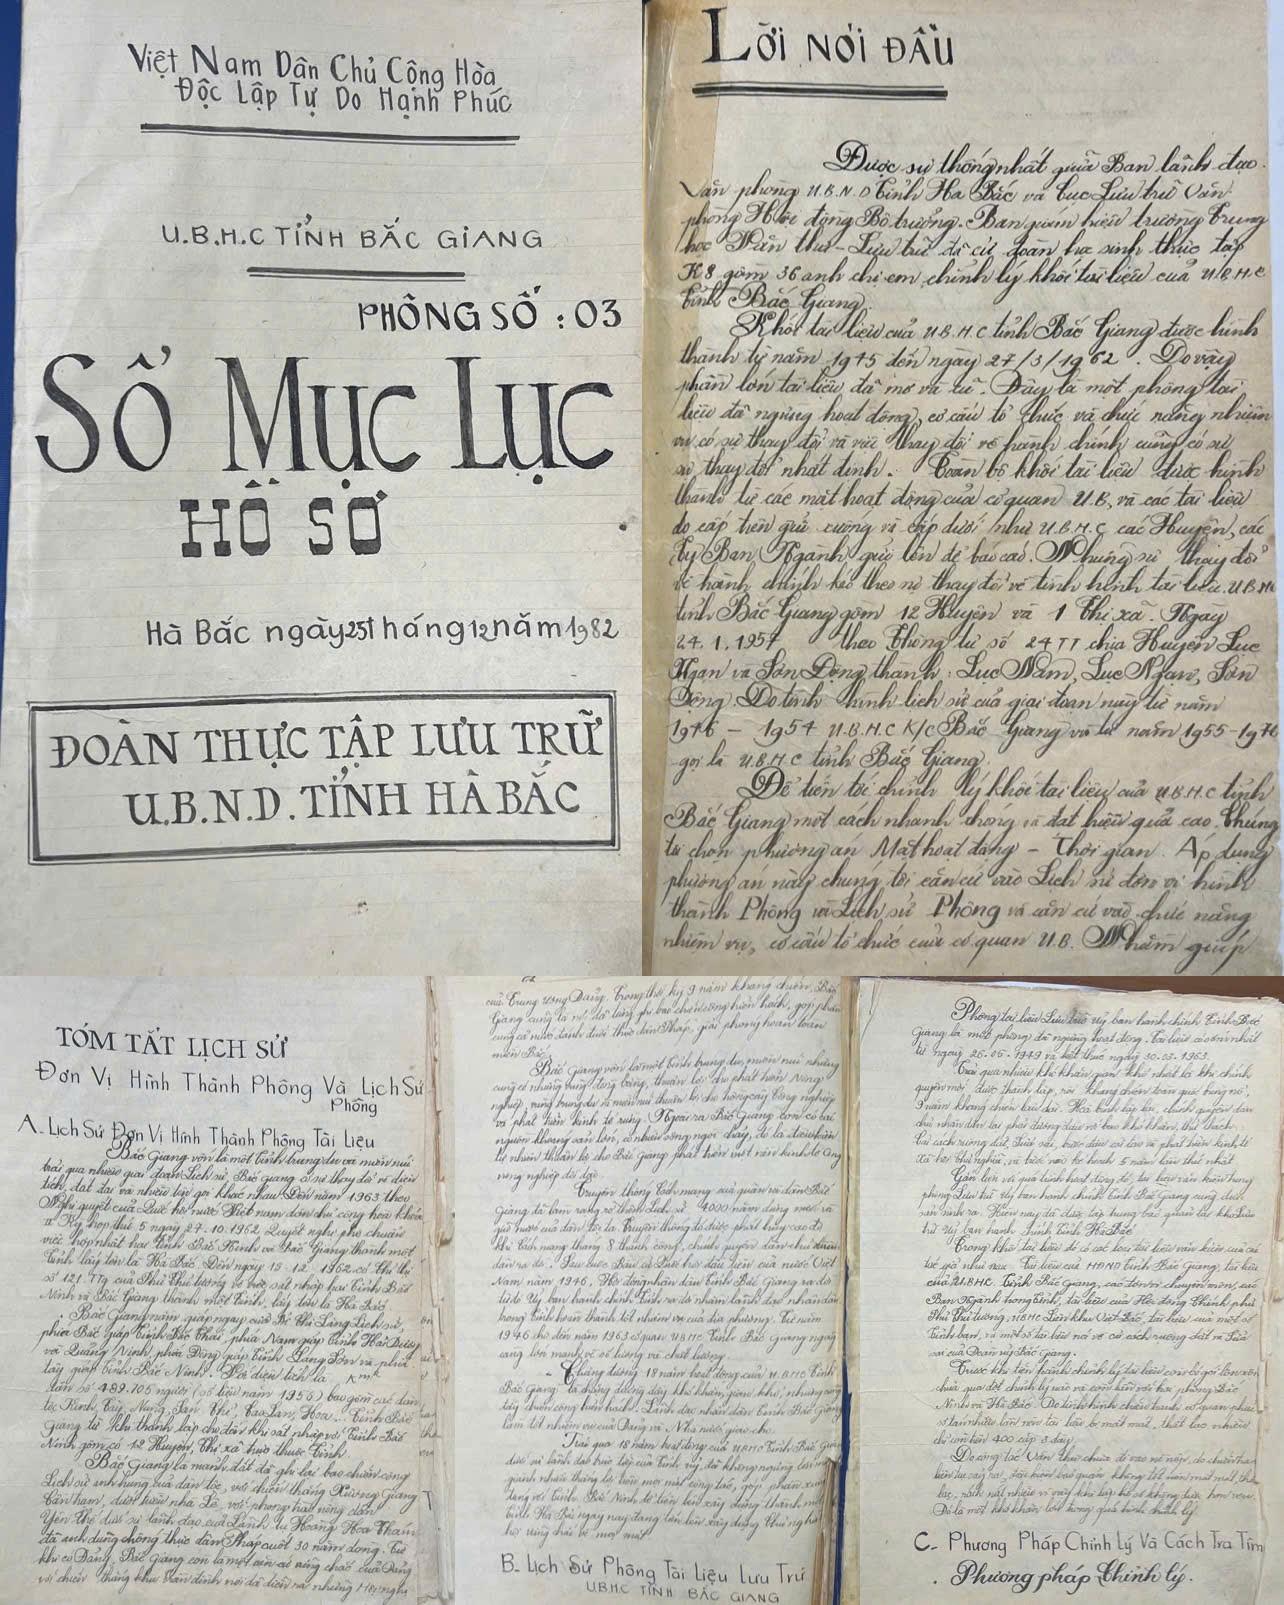 Việt Nam Dân Chủ Cộng Hòa
Độc Lập Tự Do Hạnh Phúc
U.B.H.C TỈNH BẮC GIANG
PHÔNG SỐ : 03
SỔ MỤC LỤC
HỒ SƠ
Hà Bắc ngày 25 tháng 12 năm 1982
ĐOÀN THỰC TẬP LƯU TRỮ
U.B.N.D. TỈNH HÀ BẮC
LỜI NÓI ĐẦU
Được sự thống nhất giữa Ban lãnh đạo
Văn phòng U.B.N.D Tỉnh Hà Bắc và Cục Lưu trữ Văn
phòng Hội đồng Bộ trưởng. Ban giám hiệu trường Trung
học Văn thư - Lưu trữ đã cử đoàn học sinh thực tập
K8 gồm 36 anh chị em chỉnh lý khối tài liệu của U.B.H.C
tỉnh Bắc Giang.
Khối tài liệu của U.B.H.C tỉnh Bắc Giang được hình
thành từ năm 1945 đến ngày 27/3/1962. Do vậy
phần lớn tài liệu đã mờ và cũ. Đây là một phông tài
liệu đã ngừng hoạt động, cơ cấu tổ chức và chức năng nhiệm
vụ có sự thay đổi và việc thay đổi về hành chính cũng có sự
sự thay đổi nhất định. Toàn bộ khối tài liệu được hình
thành từ các mặt hoạt động của cơ quan U.B, và các tài liệu
do cấp trên gửi xuống và cấp dưới như U.B.H.C các Huyện, các
Ty Ban Ngành gửi lên để báo cáo. Những sự thay đổi
về hành chính kéo theo nó thay đổi về tình hình tài liệu U.B.H.C
tỉnh Bắc Giang gồm 12 Huyện và 1 Thị xã. Ngày
24.1.1957 theo Thông tư số 24TT chia Huyện Lục
Ngạn và Sơn Động thành: Lục Nam, Lục Ngạn, Sơn
Động. Do tình hình lịch sử của giai đoạn này từ năm
1946 - 1954 U.B.H.C K/C Bắc Giang và từ năm 1955-19
gọi là U.B.H.C tỉnh Bắc Giang.
Để tiến tới chỉnh lý khối tài liệu của U.B.H.C tỉnh
Bắc Giang một cách nhanh chóng và đạt hiệu quả cao. Chúng
tôi chọn phương án Mặt hoạt động - Thời gian. Áp dụng
phương án này chúng tôi căn cứ vào Lịch sử đơn vị hình
thành Phông và Lịch sử Phông và căn cứ vào chức năng
nhiệm vụ, cơ cấu tổ chức của cơ quan U.B. Nhằm giúp
TÓM TẮT LỊCH SỬ
Đơn Vị Hình Thành Phông Và Lịch Sử
Phông
A- Lịch Sử Đơn Vị Hình Thành Phông Tài Liệu
Bắc Giang vốn là một tỉnh trung du và miền núi
trải qua nhiều giai đoạn Lịch sử, Bắc giang có sự thay đổi về diện
tích, đất đai và nhiều tên gọi khác nhau. Đến năm 1963 theo
Nghị quyết của Quốc hội nước Việt nam dân chủ cộng hoà khóa
Kỳ họp thứ 5 ngày 27.10.1962 Quyết nghị phê chuẩn
việc hợp nhất hai tỉnh Bắc Ninh và Bắc Giang thành một
tỉnh lấy tên là Hà Bắc. Đến ngày 15-12-1962 có Chỉ thị
số 121.TTg của Thủ Tướng về việc sát nhập hai tỉnh Bắc
Ninh và Bắc Giang thành một tỉnh, lấy tên là Hà Bắc.
Bắc Giang nằm giáp ngay cửa Ải Chi Lăng Lịch sử,
phía Bắc giáp tỉnh Bắc Thái phía Nam giáp tỉnh Hải Dương
và Quảng Ninh phía Đông giáp tỉnh Lạng Sơn và phía
tây giáp tỉnh Bắc Ninh. Với diện tích là
dân số 489.705 người (số liệu năm 1956) bao gồm các dân
tộc Kinh, Tày, Nùng, Sán Chỉ, Cao Lan, Hoa... Tỉnh Bắc
Giang từ khi thành lập cho đến khi sát nhập với Tỉnh Bắc
Ninh gồm có 12 Huyện, Thị xã trực thuộc Tỉnh.
Bắc Giang là mảnh đất đã ghi lại bao chiến công
Lịch sử anh hùng của dân tộc, với chiến thắng Xương Giang
Cần Trạm, dưới triều nhà Lê, với phong trào nông dân
Yên thế dưới sự lãnh đạo của Lãnh tụ Hoàng Hoa Thám
đã anh dũng chống thực dân Pháp suốt 30 năm dòng. Từ
khi có Đảng, Bắc Giang còn là một căn cứ vững chắc của Đảng
của Trung ương Đảng. Trong thời kỳ 9 năm kháng chiến. Bắc
Giang cũng là nơi đã từng ghi bao chiến công hiển hách, góp phần
cùng cả nước đánh đuổi thực dân Pháp, giải phóng hoàn toàn
miền Bắc.
Bắc Giang vốn là một tỉnh trung du, miền núi nhưng
cũng có những vùng đồng bằng, thuận lợi cho phát triển Nông
nghiệp, vùng trung du và miền núi thuận lợi cho trồng cây Công nghiệp
và phát triển kinh tế rừng. Ngoài ra Bắc Giang còn có tài
nguyên khoáng sản lớn, có nhiều sông ngòi chảy, đó là điều kiện
tự nhiên thuận lợi cho Bắc Giang phát triển một nền kinh tế Công
nông nghiệp dồi dào.
Truyền thống Cách mạng của quân và dân Bắc
Giang đã làm rạng rỡ thêm Lịch sử 4000 năm dựng nước và
giữ nước của dân tộc ta. Truyền thống đó được phát huy cao độ
khi Cách mạng tháng 8 thành công, chính quyền dân chủ nhân
dân ra đời. Sau cuộc Bầu cử Quốc hội đầu tiên của nước Việt
Nam năm 1946, Hội đồng nhân dân Tỉnh Bắc Giang ra đời
từ đó Uỷ ban hành chính Tỉnh ra đời nhằm lãnh đạo nhân dân
trong Tỉnh hoàn thành tốt nhiệm vụ của địa phương. Từ năm
1946 cho đến năm 1963 cơ quan UBHC Tỉnh Bắc Giang ngày
càng lớn mạnh về số lượng và chất lượng.
Chặng đường 18 năm hoạt động của U.BHC Tỉnh
Bắc Giang là chặng đường đầy khó khăn, gian khổ, nhưng cũng
đầy chiến công hiển hách. Lãnh đạo nhân dân Tỉnh Bắc Giang
làm tốt nhiệm vụ của Đảng và Nhà nước giao cho.
Trải qua 18 năm hoạt động của UBHC Tỉnh Bắc Giang
dưới sự lãnh đạo trực tiếp của Tỉnh uỷ, đã không ngừng
giành nhiều thắng lợi trên mọi mặt công tác, góp phần
cùng với tỉnh Bắc Ninh đi lên xây dựng thành một
tỉnh Hà Bắc ngày nay đang tiến lên xây dựng Chủ nghĩa
B- Lịch Sử Phông Tài Liệu Lưu Trữ
U.B.H.C TỈNH BẮC GIANG
Phông tài liệu Lưu trữ Uỷ ban hành chính Tỉnh Bắc
Giang là một phông đã ngừng hoạt động. Tài liệu có sớm nhất
từ ngày 26-05-1949 và kết thúc ngày 30-03-1963.
Trải qua nhiều khó khăn gian khổ nhất là khi chính
quyền mới được thành lập, rồi kháng chiến toàn quốc bùng nổ,
9 năm kháng chiến lâu dài. Hoà bình lập lại, chính quyền dân
chủ nhân dân lại phải đương đầu với bao khó khăn, thử thách.
Cải cách ruộng đất, Sửa sai, bước đầu cải tạo và phát triển kinh tế
xã hội chủ nghĩa, và bước vào kế hoạch 5 năm lần thứ nhất.
Gắn liền với quá trình hoạt động đó, tài liệu văn kiện trong
phông Lưu trữ Uỷ ban hành chính Tỉnh Bắc Giang cũng được
sản sinh ra. Hiện nay đã được tập trung bảo quản tại kho Lưu
trữ Uỷ ban hành chính Tỉnh Hà Bắc.
Trong khối tài liệu đó có các loại tài liệu văn kiện của các
tác giả như sau: Tài liệu của HĐND Tỉnh Bắc Giang, tài liệu
của U.BHC Tỉnh Bắc Giang, các đơn vị chuyên môn, các
Ban Ngành trong tỉnh, tài liệu của Hội đồng Chính phủ
Phủ Thủ tướng, UBHC Liên khu Việt Bắc, tài liệu của một số
Tỉnh bạn, và một số tài liệu nói về cải cách ruộng đất và Sửa
sai của Đoàn uỷ Bắc Giang.
Trước khi tiến hành chỉnh lý tài liệu còn bó gói lộn xộn
chưa qua đợt chỉnh lý nào và còn lẫn với hai phông Bắc
Ninh và Hà Bắc. Do tình hình chiến tranh cơ quan phải
sơ tán nhiều lần nên tài liệu bị mất mát, thất lạc nhiều
chỉ còn trên 400 cặp 3 dây.
Do công tác Văn thư chưa đi vào nề nếp, do chiến tranh
Đó là một khó khăn lớn trong quá trình chỉnh lý.
C- Phương Pháp Chỉnh Lý Và Cách Tra Tìm
Phương pháp Chỉnh lý.